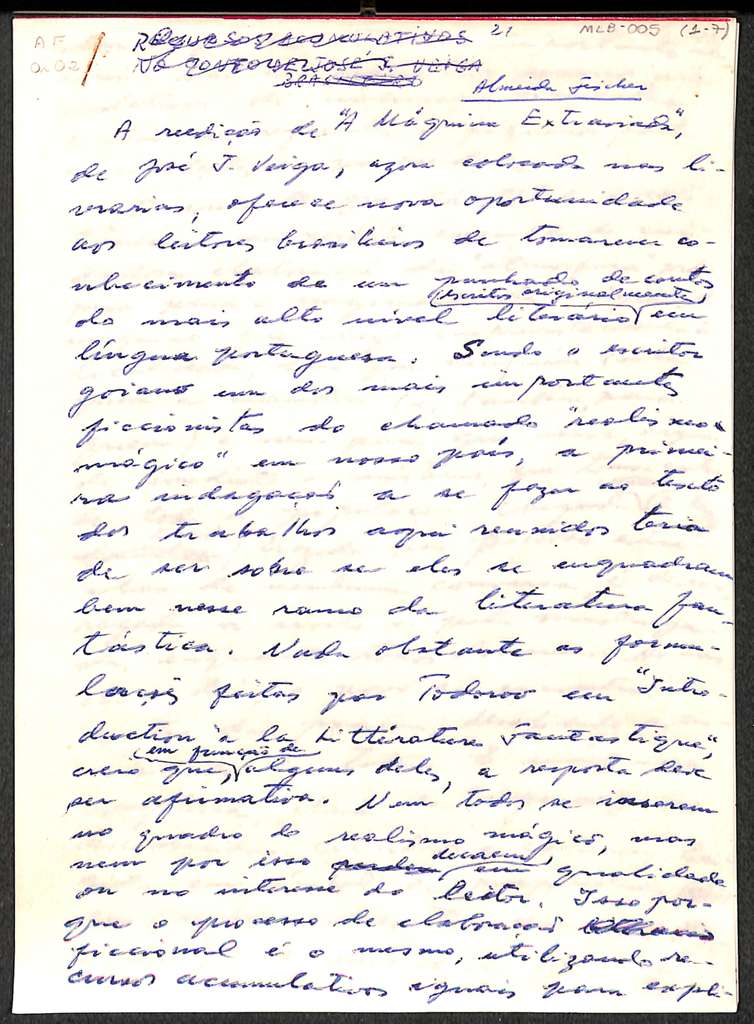 AF 0.02
RECURSOS ACUMULATIVOS 21 MLB-005 (1-7)
NO CONTO DE JOSÉ J. VEIGA
Almeida Fischer
A reedição de "A Máquina Extraviada",
de José J. Veiga, agora colocada nas li-
vrarias, oferece nova oportunidade
aos leitores brasileiros de tomarem co-
nhecimento de um punhado de contos
(escritos originalmente)
do mais alto nível literário em
língua portuguesa. Sendo o escritor
goiano um dos mais importantes
ficcionistas do chamado "realismo
mágico" em nosso país, a primei-
ra indagação a se fazer ao texto
dos trabalhos aqui reunidos teria
de ser sobre se eles se enquadram
bem nesse ramo da literatura fan-
tástica. Nada obstante as formu-
lações feitas por Todorov em "Intro-
duction a la Littérature Fantastique",
em função de
creio que, alguns deles, a resposta deve
ser afirmativa. Nem todos se inserem
no quadro do realismo mágico, mas
decaem
nem por isso perdem em qualidade
ou no interesse do leitor. Isso por-
que o processo de elaboração
ficcional é o mesmo, utilizando re-
cursos acumulativos iguais para expli-